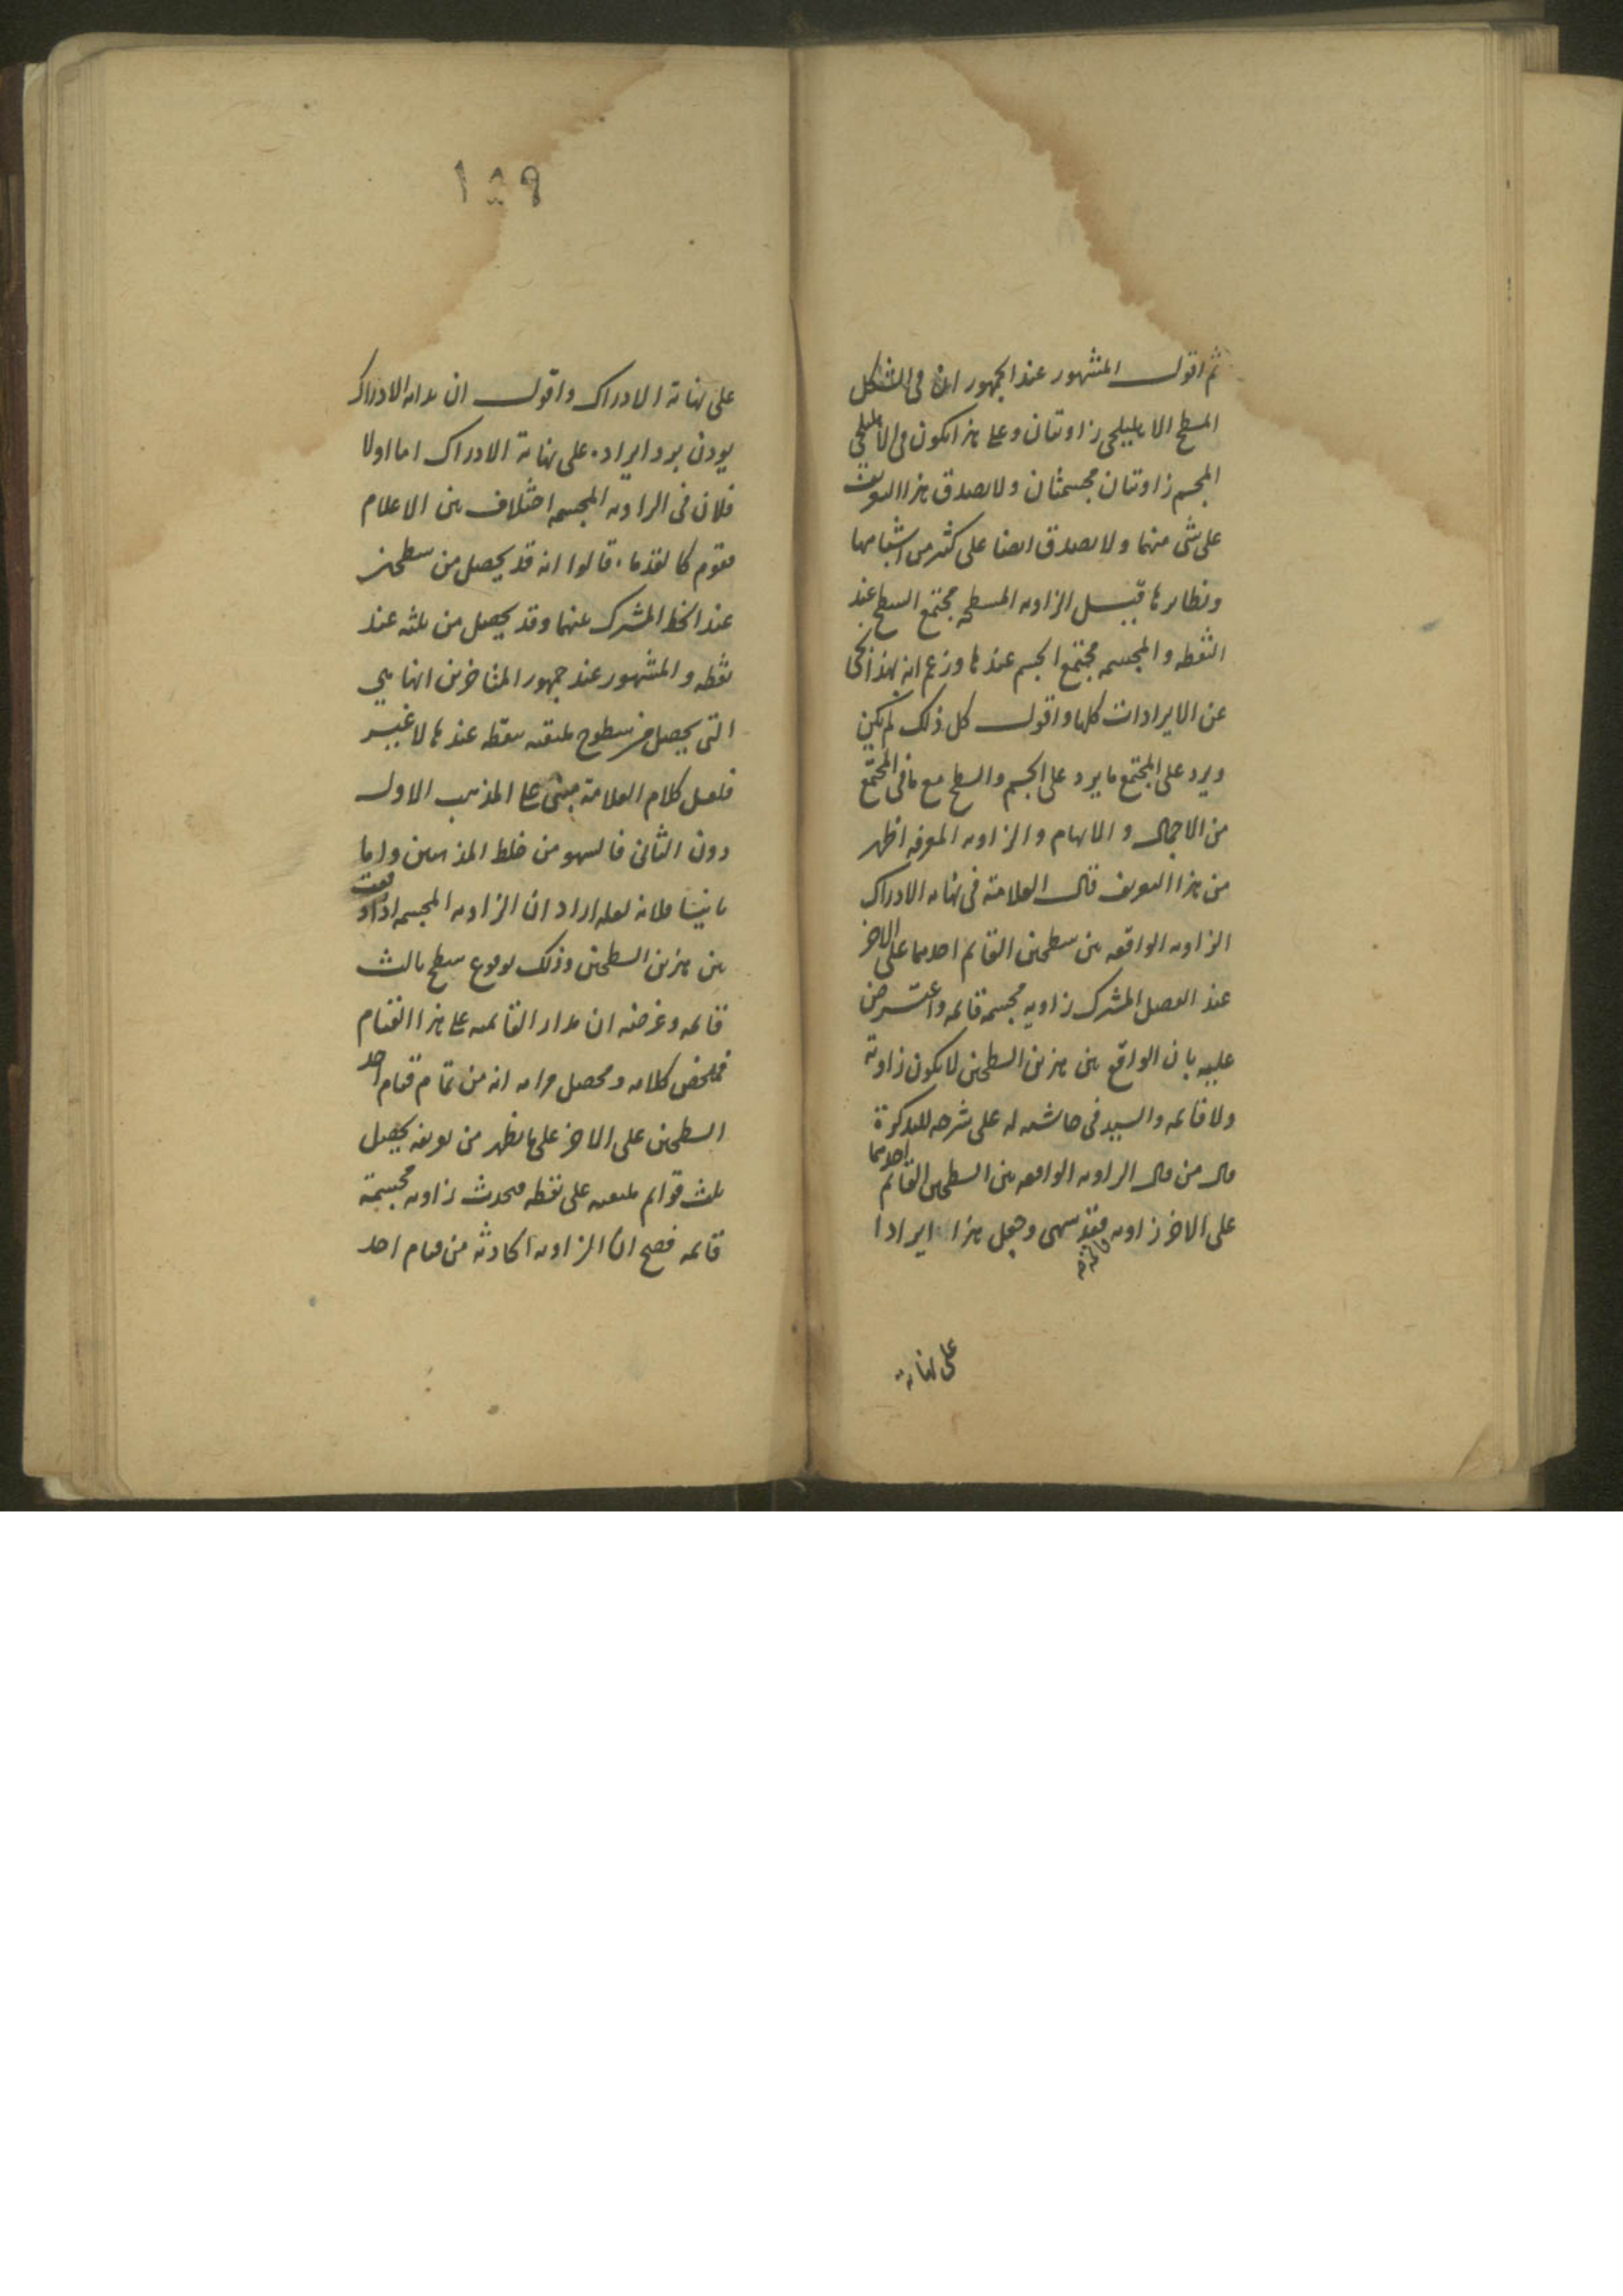 ثم اقول المشهور عند الجمهور ان فى الشكل
المسطح الاهليلجى زاويتان وعلى هذا يكون فى الاهليلجى
المجسم زاويتان مجسمتان ولا يصدق هذا التعريف
على شى منهما ولا يصدق ايضا على كثير من اشباهها
ونظايرها قيل الزاويه المسطحه مجتمع السطح عند
النقطه والمجسمه مجتمع الجسم عندها وزعم ان بهذا
عن الايرادات كلها واقول كل ذلك لم يكن
ويرد على المجتمع ما يرد على الجسم والسطح مع ما فى المجتمع
من الاجمال والابهام والزاويه المعرفه اظهر
من هذا التعريف قال العلامة فى نهايه الادراك
الزاويه الواقعه بين سطحين القايم احدهما على الاخر
عند الفصل المشترك زاويه مجسمه قايمه واعترض
عليه بان الواقع بين هذين السطحين لا يكون زاوية
ولا قايمه والسيد فى حاشيه له على شرحه للتذكرة
قال من قال الزاويه الواقعه بين السطحين القايم احدهما
على الاخر زاويه قايمه فقد سهى وجعل هذا ايرادا
على نهاية
١٥٩
على نهاية الادراك واقول ان بداية الادراك
يوذن برد ايراده على نهاية الادراك اما اولا
فلان فى الزاويه المجسمه اختلاف بين الاعلام
فقوم كالقدماء قالوا انه قد يحصل من سطحين
عند الخط المشترك بينهما وقد يحصل من ثلثه عند
نقطه والمشهور عند جمهور المتاخرين انها هي
التى يحصل من سطوح ملتقيه بنقطه عندها لا غير
فلعل كلام العلامة مبنى على المذهب الاول
دون الثانى فالسهو من خلط المذهبين واما
ثانيا فلانه لعله اراد ان الزاويه المجسمه اذا وقعت
بين هذين السطحين وذلك لوقوع سطح ثالث
قايمه وغرضه ان مدار القايميه على هذا القيام
فملخص كلامه ومحصل مرامه انه من تمام قيام احد
السطحين على الاخر على ما يظهر من تعريفه يحصل
ثلث قوايم ملتقيه على نقطه فيحدث زاويه مجسمة
قايمه فصح ان الزاويه الحادثه من قيام احد